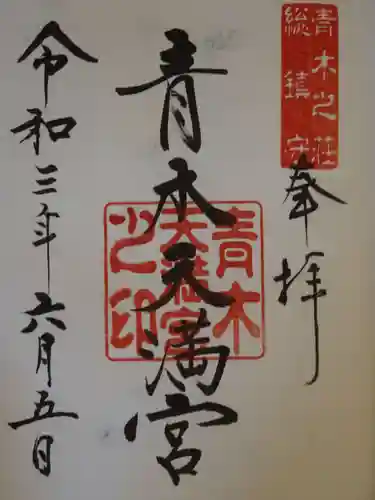 青木之荘
総鎮守
奉拝
青木天満宮
青木
天満宮
之印
令和三年六月五日